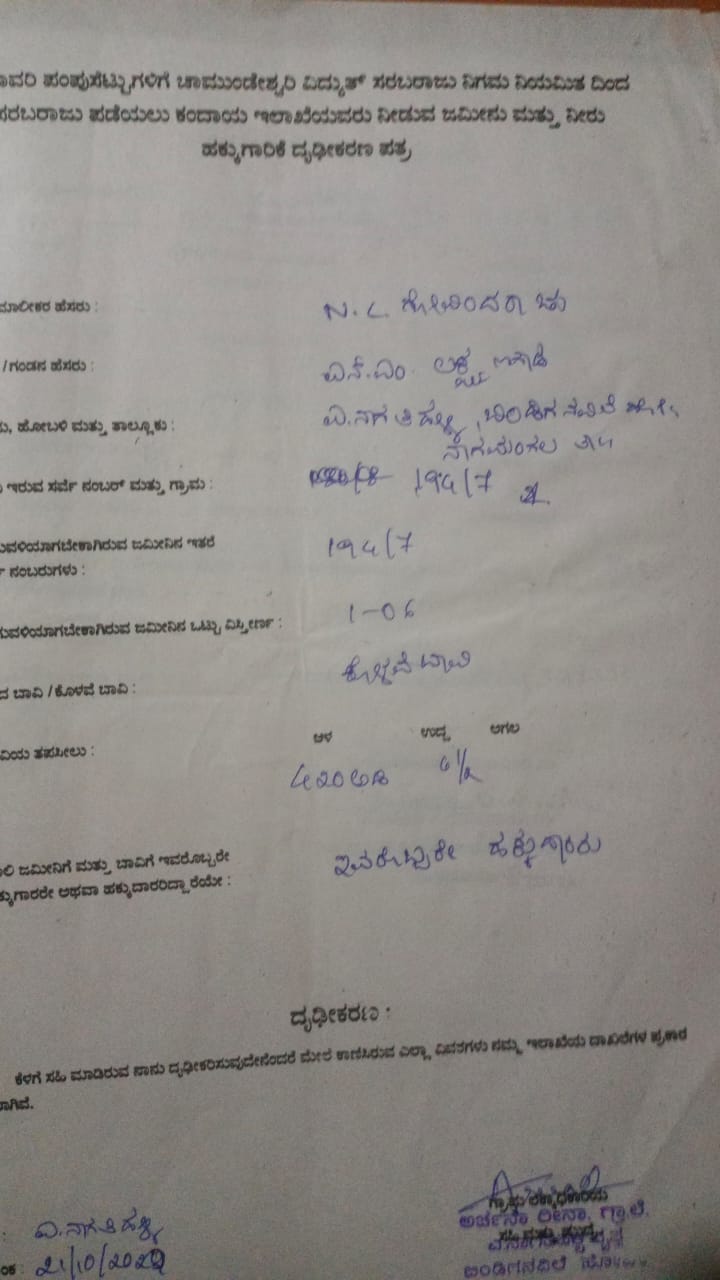 ಾವರಿ ಪಂಪುಸೆಟ್ಟುಗಳಿಗೆ ಚಾಮುಂಡೇಶ್ವರಿ ವಿದ್ಯುತ್ ಸರಬರಾಜು ನಿಗಮ ನಿಯಮಿತ ದಿಂದ
ಸರಬರಾಜು ಪಡೆಯಲು ಕಂದಾಯ ಇಲಾಖೆಯವರು ನೀಡುವ ಜಮೀನು ಮತ್ತು ನೀರು
ಹಕ್ಕುಗಾರಿಕೆ ದೃಢೀಕರಣ ಪತ್ರ
ಮಾಲೀಕರ ಹೆಸರು : N. L ಗೋವಿಂದರಾಜು
/ಗಂಡನ ಹೆಸರು : ಎನ್.ಎಂ. ಲಕ್ಷ್ಮಣಗೌಡ
ು, ಹೋಬಳಿ ಮತ್ತು ತಾಲ್ಲೂಕು : ಎ.ನಾಗತಿಹಳ್ಳಿ, ಬಿಂಡಿಗನವಿಲೆ
ನಾಗಮಂಗಲ ತಾ॥
ಇರುವ ಸರ್ವೆ ನಂಬರ್ ಮತ್ತು ಗ್ರಾಮ : 194/7
ುವಳಿಯಾಗಬೇಕಾಗಿರುವ ಜಮೀನಿನ ಇತರೆ 194/7
ನಂಬರುಗಳು :
ುವಳಿಯಾಗಬೇಕಾಗಿರುವ ಜಮೀನಿನ ಒಟ್ಟು ವಿಸ್ತೀರ್ಣ : 1-06
ದ ಬಾವಿ / ಕೊಳವೆ ಬಾವಿ : ಕೊಳವೆ ಬಾವಿ
ವಿಯ ತಪಸೀಲು : ಆಳ ಉದ್ದ ಅಗಲ
420 ಅಡಿ 6½
ಲಿ ಜಮೀನಿಗೆ ಮತ್ತು ಬಾವಿಗೆ ಇವರೊಬ್ಬರೇ ಇವರೊಬ್ಬರೇ ಹಕ್ಕುದಾರರು
ಕ್ಕುಗಾರರೇ ಅಥವಾ ಹಕ್ಕುದಾರರಿದ್ದಾರೆಯೇ :
ದೃಢೀಕರಣ :
ಕೆಳಗೆ ಸಹಿ ಮಾಡಿರುವ ನಾನು ದೃಢೀಕರಿಸುವುದೇನೆಂದರೆ ಮೇಲೆ ಕಾಣಿಸಿರುವ ಎಲ್ಲಾ ವಿವರಗಳು ನಮ್ಮ ಇಲಾಖೆಯ ದಾಖಲೆಗಳ ಪ್ರಕಾರ
ಾಗಿವೆ.
ಗ್ರಾಮ ಲೆಕ್ಕಾಧಿಕಾರಿಯ
ಅರ್ಚನಾ ಗ್ರಾ.ಲೆ.
: ಎ.ನಾಗತಿಹಳ್ಳಿ ಸಹಿ ಮತ್ತು
ಂಕ : 21/10/2022 ಬಿಂಡಿಗನವಿಲೆ